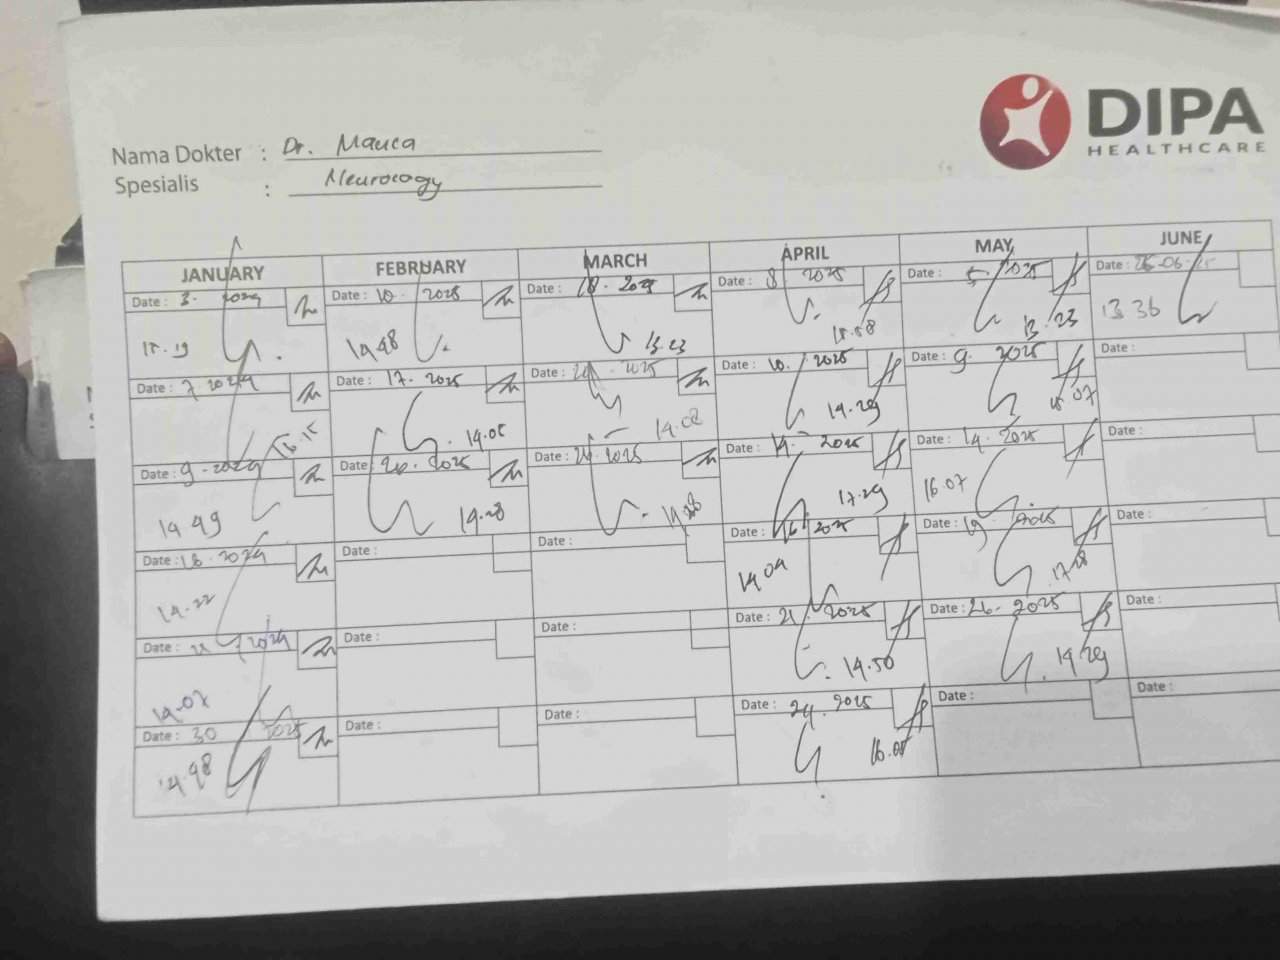 DIPA
HEALTHCARE
Nama Dokter : Dr. Mauca
Spesialis : Neurocogy
JANUARY FEBRUARY MARCH APRIL MAY JUNE
Date : 3. 2024 Date : 10. 2025 Date : 18. 2025 Date : 8. 2025 Date : 5. 2025 Date : 26-06-25
15.19 14.48 13.23 15.58 13.23 13.36
Date : 7. 2024 Date : 17. 2025 Date : 2025 Date : 10. 2025 Date : 9. 2025 Date :
16.15 14.05 14.02 14.29 15.07
Date : 9. 2024 Date : 20. 2025 Date : 24. 2025 Date : 14. 2025 Date : 14. 2025 Date :
14.49 14.28 14.28 17.29 16.07
Date : 16. 2024 Date : Date : Date : 16. 2025 Date : 19. 2025 Date :
14.22 14.04 17.18
Date : 21 2024 Date : Date : Date : 21. 2025 Date : 26. 2025 Date :
14.07 14.50 14.29
Date : 30 2025 Date : Date : Date : 24. 2025 Date : Date :
14.48 16.05